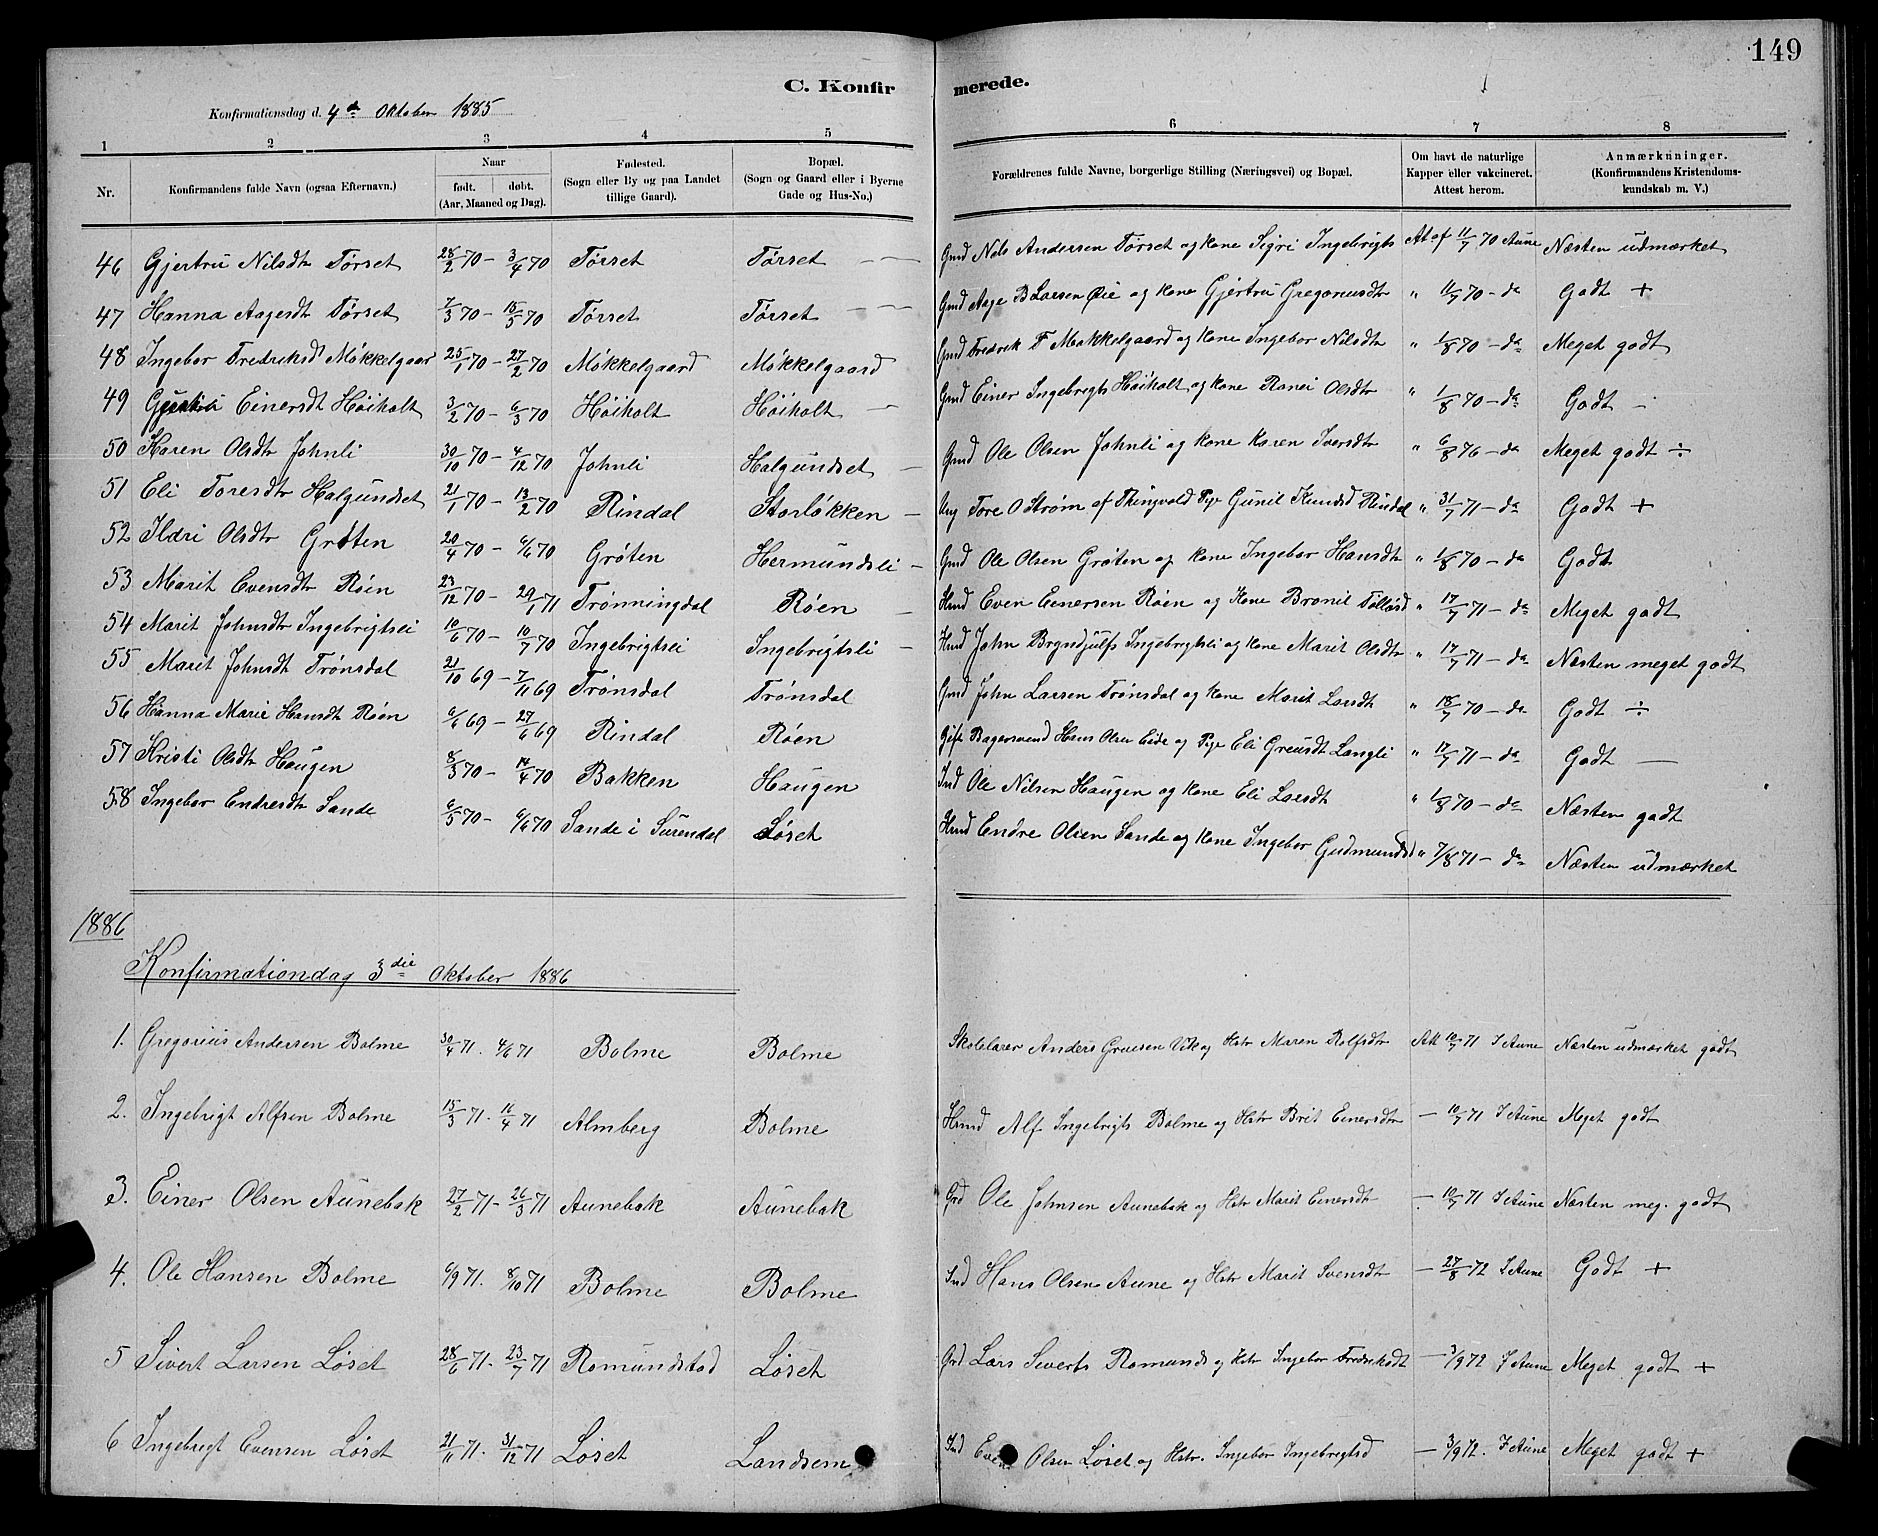 149
C. Konfirmerede.
Konfirmationsdag d. 4de Oktober 1885
1 2 3 4 5 6 7 8
Nr. Konfirmandens fulde Navn (ogsaa Efternavn.) Naar født. døbt. (Aar, Maaned og Dag). Fødested. (Sogn eller By og paa Landet tillige Gaard). Bopæl. (Sogn og Gaard eller i Byerne Gade og Hus-No.) Forældrenes fulde Navne, borgerlige Stilling (Næringsvei) og Bopæl. Om havt de naturlige Kapper eller vakcineret. Attest herom. Anmærkninger. (Konfirmandens Kristendomskundskab m. V.)
46 Gjertru Nilsdtr Tørset 28/2 70 – 3/4 70 Tørset Tørset Gmd Nils Andersen Tørset og kone Sigri Ingebrigts At af 11/7 70 Aune Næsten udmærket
47 Hanna Aagesdt Tørset 7/3 70 – 15/5 70 Tørset Tørset Gmd Aage B Larsen Øie og kone Gjertru Gregoriusdtr " 11/7 70 – do Godt +
48 Ingebor Fredriksdt Møkkelgaar 25/1 70 – 27/2 70 Møkkelgaard Møkkelgaard Gmd Fredrik F Møkkelgaard og kone Ingebor Nilsdtr " 1/8 70 – do Meget godt
49 Gjertru Einersdt Høiholt 3/2 70 – 6/3 70 Høiholt Høiholt Gmd Einer Ingebrigts Høiholt og kone Ranei Olsdtr " 1/8 70 – do Godt –
50 Karen Olsdtr Johnli 30/10 70 – 4/12 70 Johnli Halgundset Gmd Ole Olsen Johnli og kone Karen Iversdtr " 6/8 76 – do Meget godt ÷
51 Eli Toresdtr Halgundset 21/1 70 – 13/2 70 Rindal Storløkken Ung Tore O Strøm af Thingvold Pige Gunil Knudsd Rindal " 31/7 71 – do Godt +
52 Ildri Olsdtr Grøten 20/4 70 – 6/6 70 Grøten Hermundsli Gmd Ole Olsen Grøten og kone Ingebor Hansdtr " 1/8 70 – do Godt
53 Marit Evensdtr Røen 23/12 70 – 29/1 71 Trønningdal Røen Hmd Even Einersen Røen og Kone Bronil Tollefsd " 17/7 71 – do Meget godt
54 Marit Johnsdtr Ingebrigtsli 10/6 70 – 10/7 70 Ingebrigtsli Ingebrigtsli Hmd John Brynjulfs Ingebrigtsli og kone Marit Olsdtr " 17/7 71 – do Næsten meget godt
55 Marit Johnsdt Trønsdal 21/10 69 – 7/11 69 Trønsdal Trønsdal Gmd John Larsen Trønsdal og kone Marit Larsdt " 18/7 70 – do Godt ÷
56 Hanna Marie Hansdt Røen 6/6 69 – 27/6 69 Rindal Røen Gift Bagersvend Hans Olsen Eide og Pige Eli Greusdt Langli " 17/7 71 – do Godt —
57 Kristi Olsdtr Haugen 8/3 70 – 14/4 70 Bakken Haugen Ind Ole Nilsen Haugen og kone Eli Larsdt " 1/8 70 – do Næsten godt
58 Ingebor Endresdtr Sande 6/5 70 – 6/6 70 Sande i Surendal Løset Hmd Endre Olsen Sande og kone Ingebor Gudmundsd " 7/8 71 – do Næsten udmærket
1886
Konfirmationdag 3die Oktober 1886
1. Gregorius Andersen Bolme 30/4 71. 4/6 71 Bolme Bolme Skolelærer Anders Gruesen Vik og Hstr Maren Rolfsdtr Att 10/7 71 I Aune Næsten udmærket godt
2. Ingebrigt Alfsen Bolme 15/3 71. 16/4 71 Almberg Bolme Hmd Alf Ingebrigts Bolme og Hstr Brit Einersdtr – 10/7 71 I Aune Meget godt
3. Einer Olsen Aunebak 27/2 71 – 26/3 71 Aunebak Aunebak Grd Ole Johnsen Aunebak og Hstr Marit Einersdt – 10/7 71 I Aune Næsten meg. godt
4. Ole Hansen Bolme 6/9 71. 8/10 71 Bolme Bolme Ind Hans Olsen Aune og Hstr Marit Svensdtr – 27/8 72 I Aune Godt +
5 Sivert Larsen Løset 28/6 71. 23/7 71 Romundstad Løset Grd Lars Siverts Romunds og Hstr Ingebor Fredriksdt – 3/9 72 I Aune Meget godt +
6 Ingebrigt Evensen Løset 21/11 71. 31/12 71 Løset Landsem Ind Even Olsen Løset og Hstr. Ingebor Ingebrigtsd – 3/9 72. I Aune Meget godt +